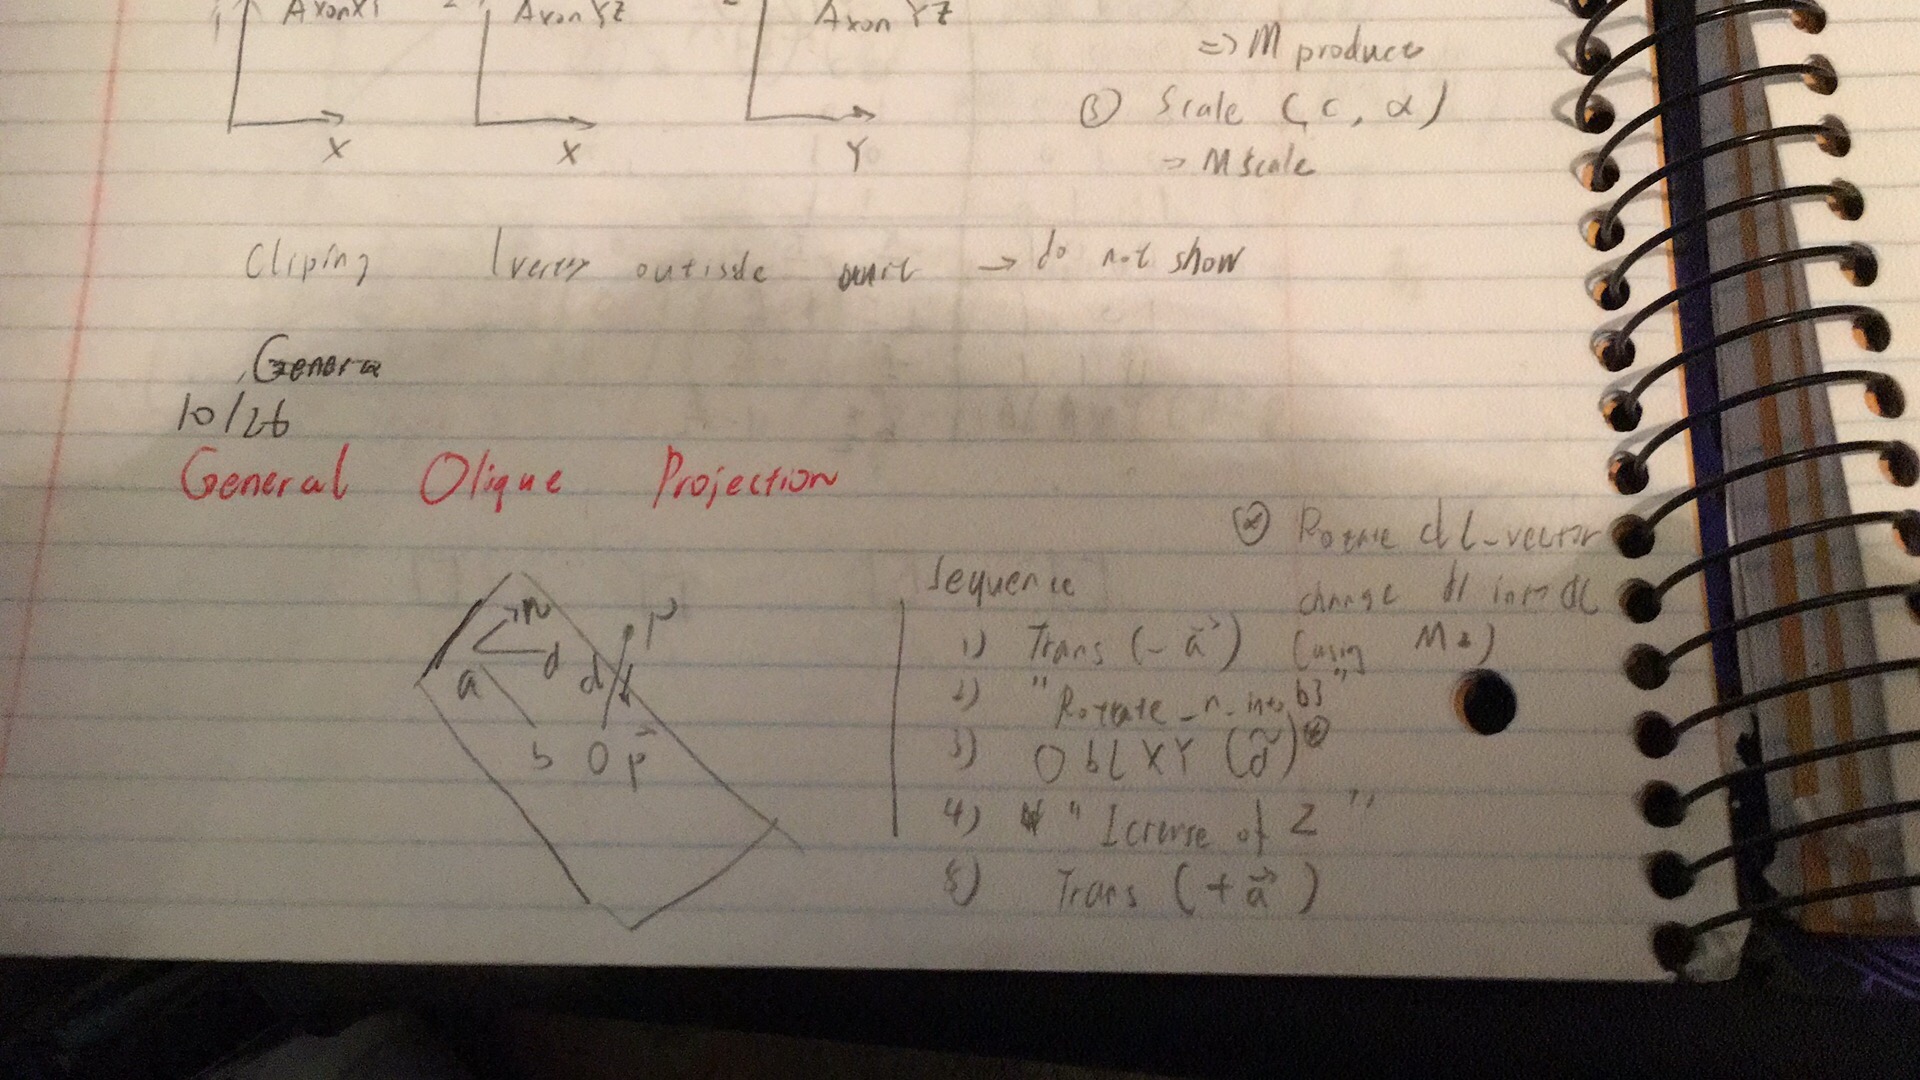 AxonXY AxonYZ Axon YZ
X X Y
=> M produce
③ Scale (c, α)
→ M scale
Cliping (vertex outisde → do not show
Genera
10/26
General Olique Projection
n
a d d P
b O p⃗
Sequence
1) Trans (- a⃗)
2) "Rotate_n_into b3"
3) OblXY (d̃)
4) " of Z "
5) Trans (+ a⃗)
Rotate d l_vector
change dl into dl
(using M2)